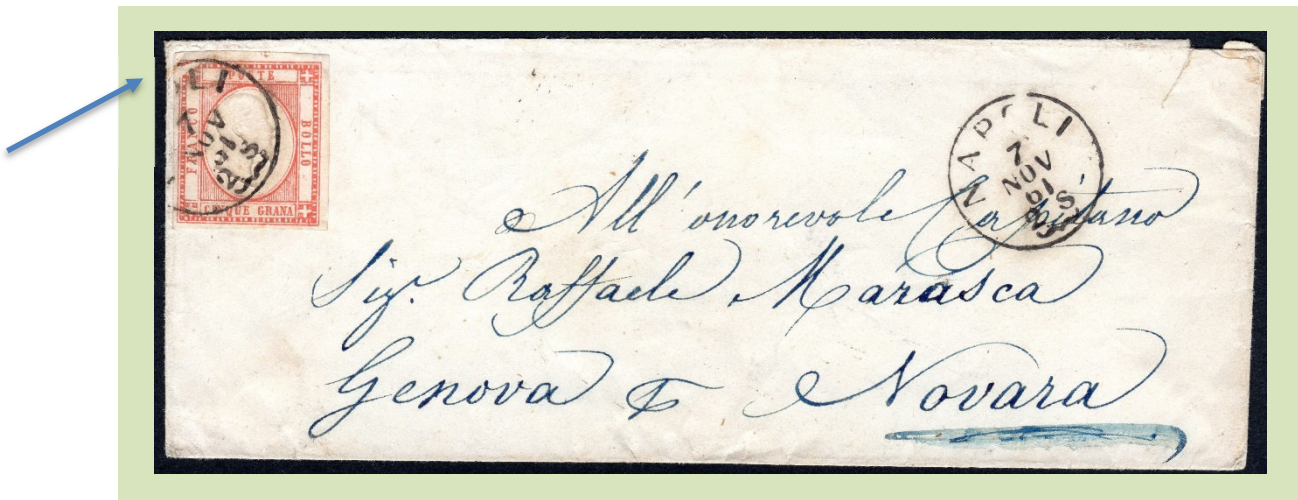 POSTE
FRANCO
BOLLO
CINQUE GRANA
NAPOLI
7
NOV
61
All'onorevole Capitano
Sig. Raffaele Marasca
Genova
Novara